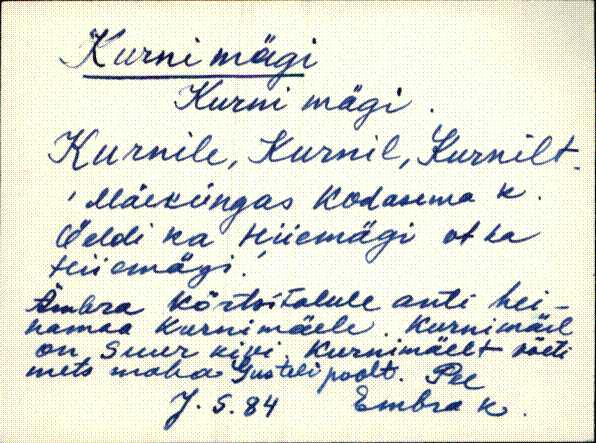 Kurni mägi
Kurni mägi.
Kurnile, Kurnil, Kurnilt.
Mäeküngas Kodasema k.
Öeldi ka Hiiemägi
Hiiemägi.
Ämbra Kõrtsitalule anti hei-
namaa Kurnimäele. Kurnimäel
on suur kivi. Kurnimäelt võeti
mets maha Gusteli poolt.
J. S. 84 Embra k.